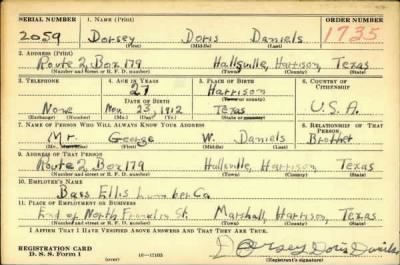 SERIAL NUMBER 1. NAME (Print) ORDER NUMBER
2059 Dorsey Doris Daniels 1735
(First) (Middle) (Last)
2. ADDRESS (Print)
Route 2, Box 179 Hallsville, Harrison, Texas
(Number and street or R. F. D. number) (Town) (County) (State)
3. TELEPHONE 4. AGE IN YEARS 5. PLACE OF BIRTH 6. COUNTRY OF CITIZENSHIP
27 Harrison
(Town or county)
DATE OF BIRTH
None Nov. 23, 1912 Texas U.S.A.
(Exchange) (Number) (Mo.) (Day) (Yr.) (State or country)
7. NAME OF PERSON WHO WILL ALWAYS KNOW YOUR ADDRESS 8. RELATIONSHIP OF THAT PERSON
Mr. George W. Daniels Brother
(First) (Middle) (Last)
9. ADDRESS OF THAT PERSON
Route 2, Box 179 Hallsville, Harrison Texas
(Number and street or R. F. D. number) (Town) (County) (State)
10. EMPLOYER'S NAME
Bass Ellis Lumber Co
11. PLACE OF EMPLOYMENT OR BUSINESS
End of North Franklin St. Marshall, Harrison, Texas.
(Number and street or R. F. D. number) (Town) (County) (State)
I AFFIRM THAT I HAVE VERIFIED ABOVE ANSWERS AND THAT THEY ARE TRUE.
REGISTRATION CARD Dorsey Doris Daniels
D. S. S. Form 1 (over) (Registrant's signature)